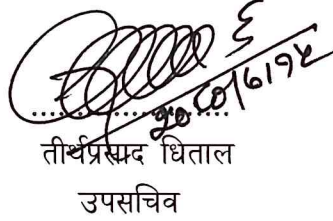 २०८०/६/१५
....................
तीर्थप्रसाद धिताल
उपसचिव